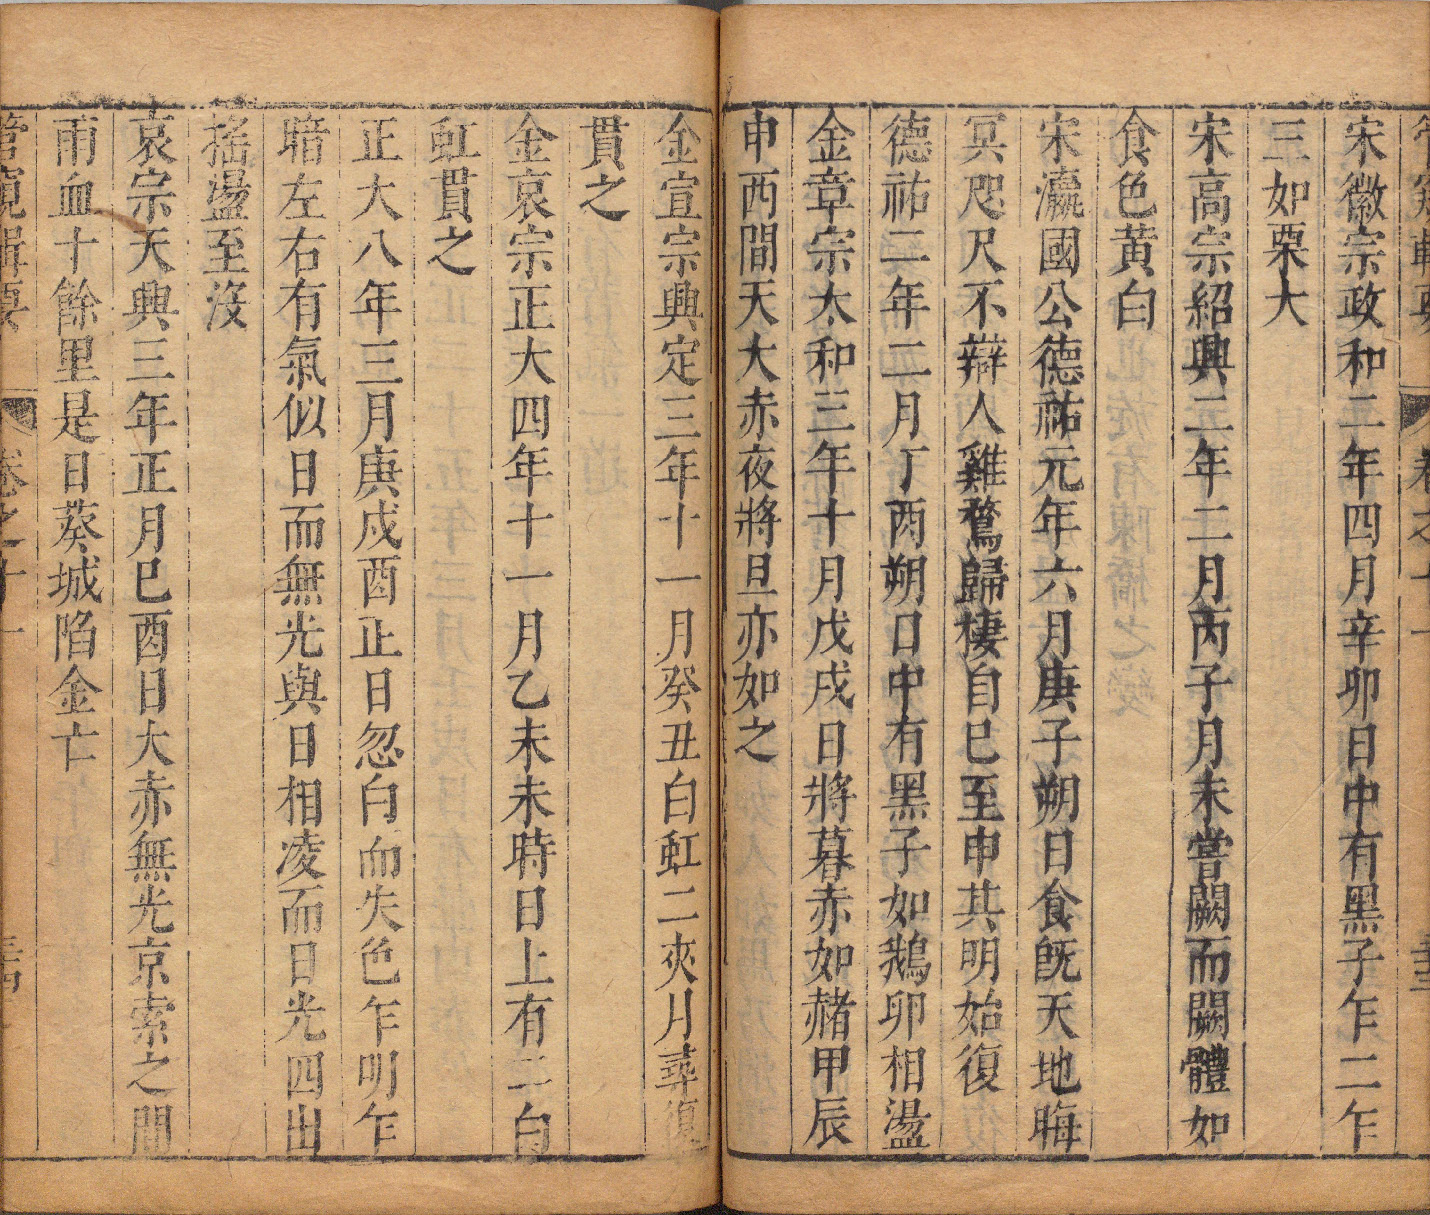 管窺輯要 卷之十一
宋徽宗政和二年四月辛卯日中有黑子乍二乍
三如栗大
宋高宗紹興二年二月丙子月未當闕而闕體如
食色黃白
宋瀛國公德祐元年六月庚子朔日食既天地晦
冥咫尺不辯人雞鶩歸棲自巳至申其明始復
德祐二年二月丁丙朔日中有黑子如鵝卵相盪
金章宗太和三年十月戊戌日將暮赤如赭甲辰
申西間天大赤夜將旦亦如之
金宣宗興定三年十一月癸丑白虹二夾月尋復
貫之
金哀宗正大四年十一月乙未未時日上有二白
虹貫之
正大八年三月庚戍酉正日忽白而失色乍明乍
暗左右有氣似日而無光與日相凌而日光四出
搖盪至沒
哀宗天興三年正月巳酉日大赤無光京索之間
雨血十餘里是日蔡城陷金亡
管窺輯要 卷之十一